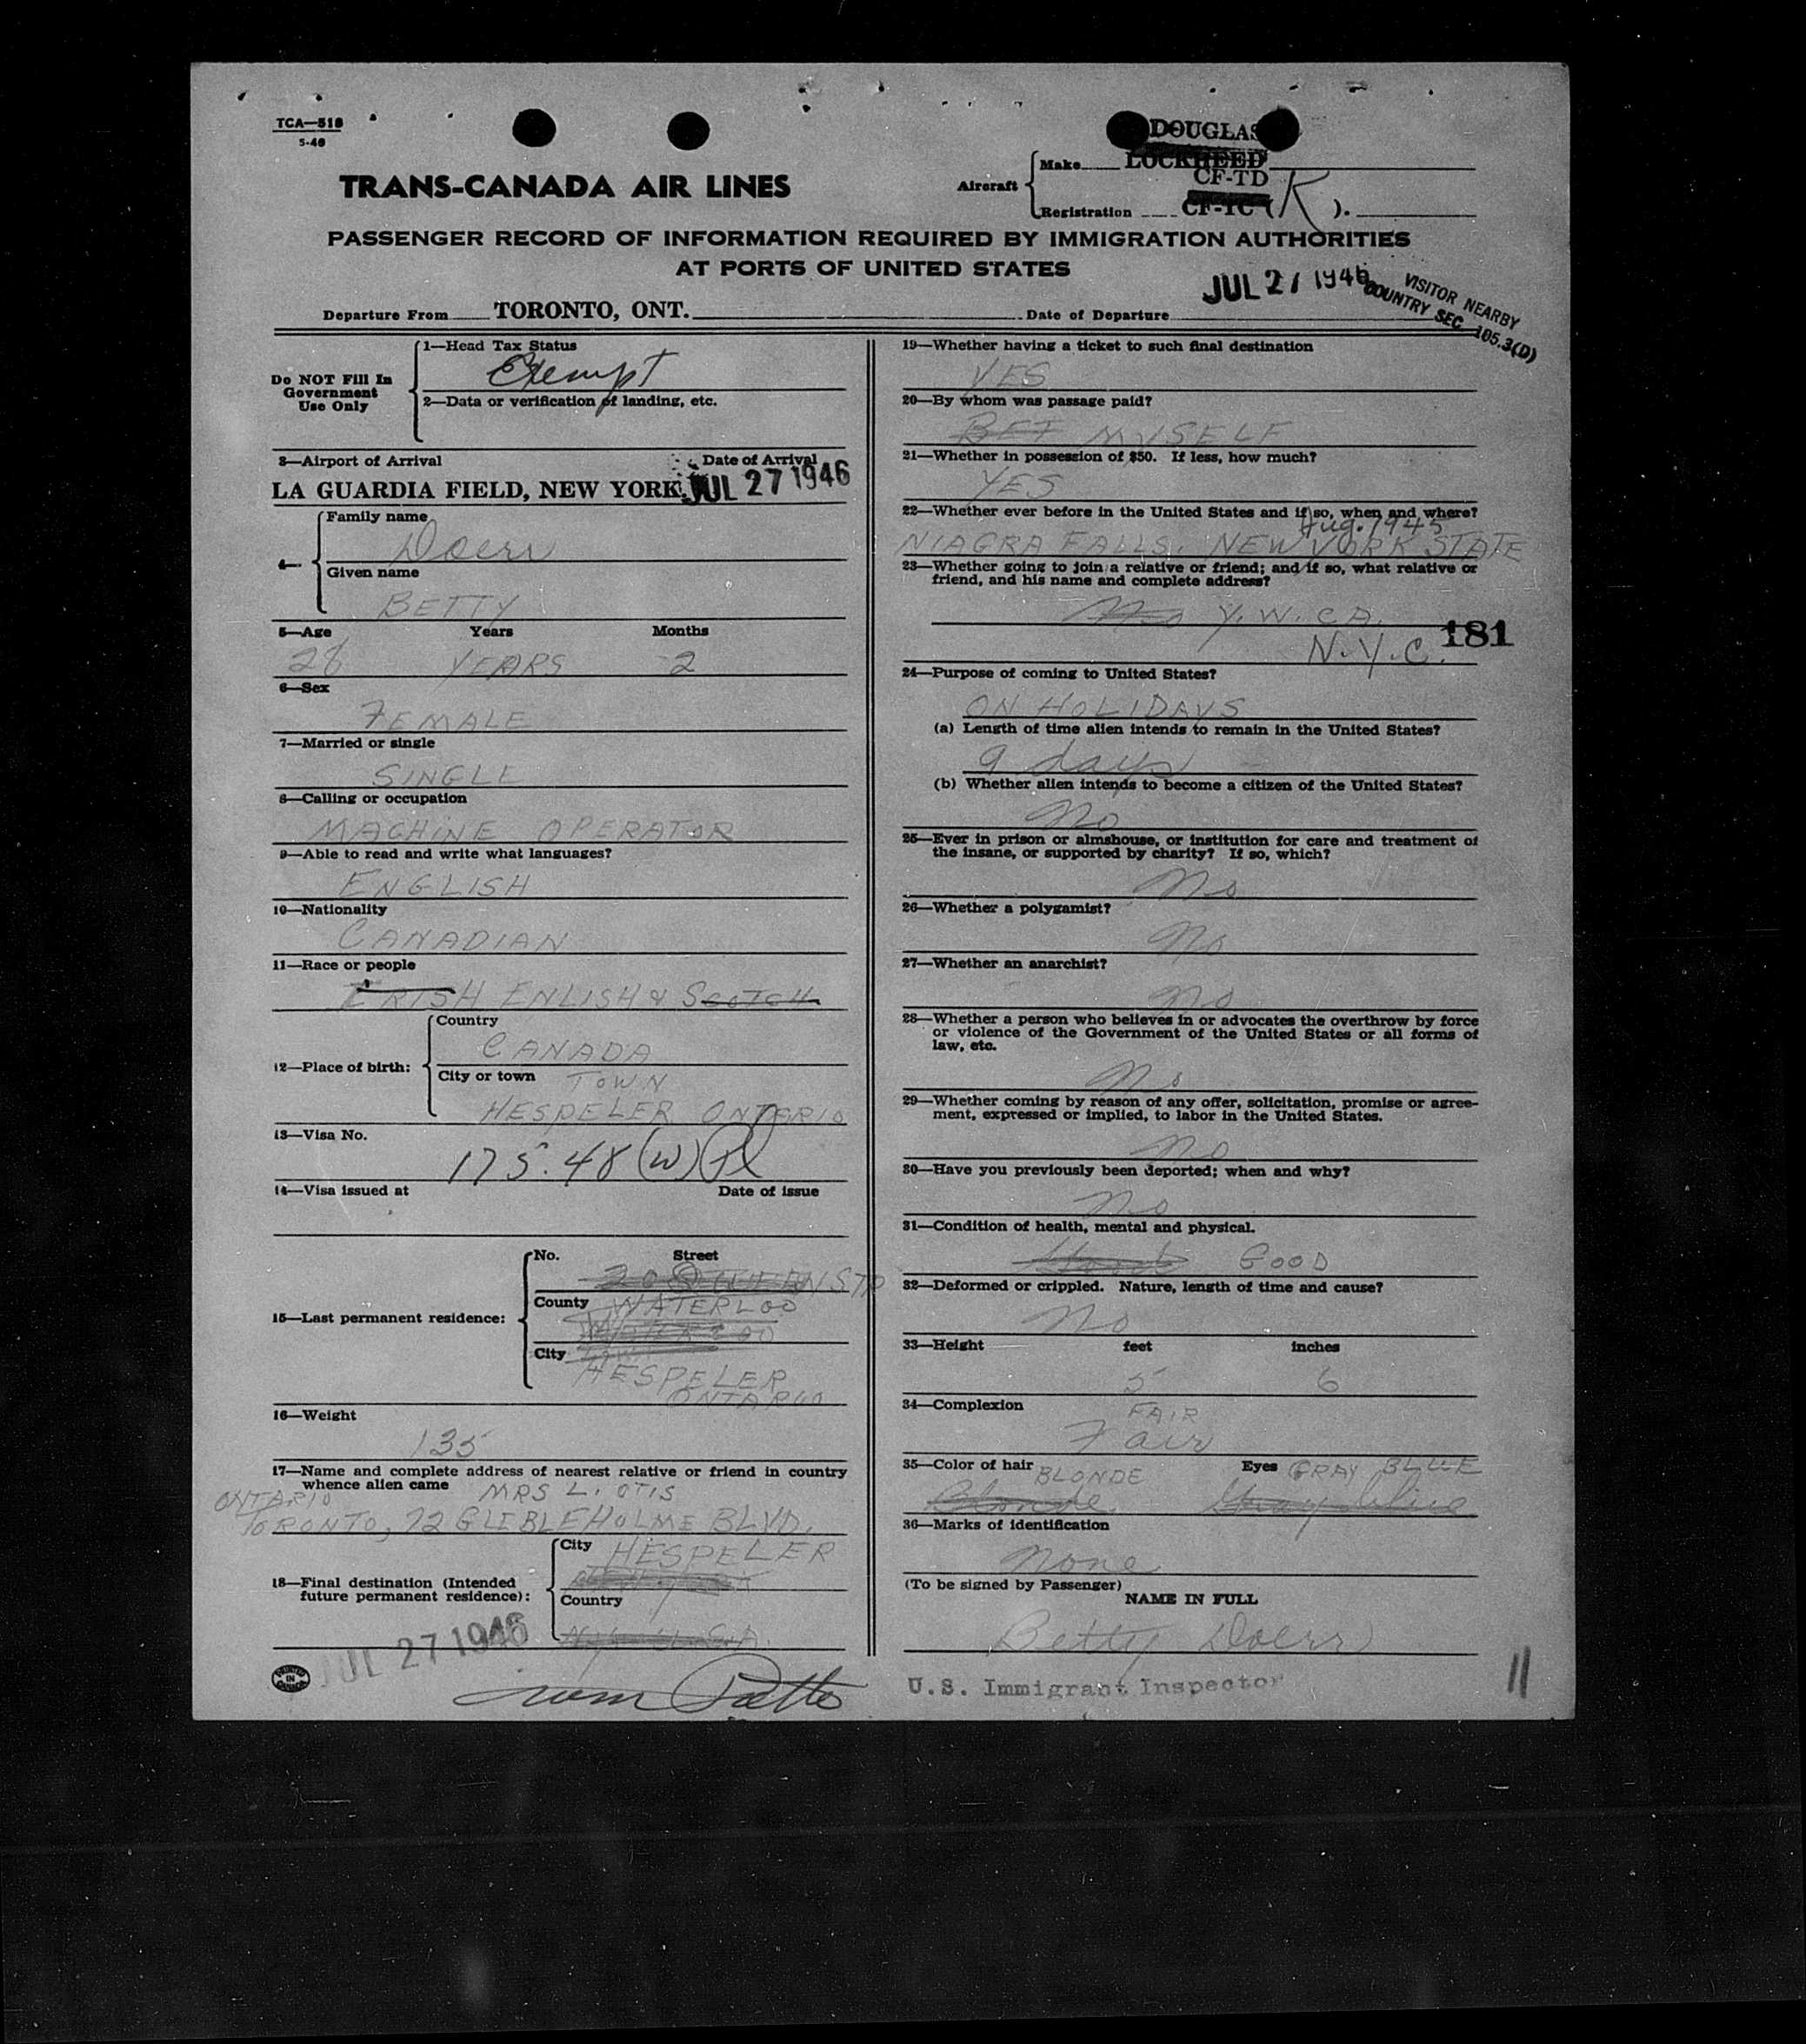 TCA—518
5-46
DOUGLAS
Aircraft
Make LOCKHEED
CF-TD
Registration CF-TC (K).
TRANS-CANADA AIR LINES
PASSENGER RECORD OF INFORMATION REQUIRED BY IMMIGRATION AUTHORITIES
AT PORTS OF UNITED STATES
JUL 27 1946
VISITOR NEARBY
COUNTRY SEC 105.3(D)
Departure From TORONTO, ONT. Date of Departure
Do NOT Fill In
Government
Use Only
1—Head Tax Status
Exempt
2—Data or verification of landing, etc.
3—Airport of Arrival Date of Arrival
LA GUARDIA FIELD, NEW YORK. JUL 27 1946
4—
Family name
Doerr
Given name
BETTY
5—Age Years Months
28 YEARS 2
6—Sex
FEMALE
7—Married or single
SINGLE
8—Calling or occupation
MACHINE OPERATOR
9—Able to read and write what languages?
ENGLISH
10—Nationality
CANADIAN
11—Race or people
IRISH ENLISH & SCOTCH
12—Place of birth:
Country
CANADA
City or town TOWN
HESPELER ONTARIO
13—Visa No.
175.48 (W)
14—Visa issued at Date of issue
15—Last permanent residence:
No. Street
County WATERLOO
City
HESPELER
ONTARIO
16—Weight
135
17—Name and complete address of nearest relative or friend in country
whence alien came MRS L. OTIS
ONTARIO
TORONTO, 72 GLEBLEHOLME BLVD.
18—Final destination (Intended
future permanent residence):
City HESPELER
Country
N.Y. U.S.A.
JUL 27 1946
PRINTED
IN
CANADA
19—Whether having a ticket to such final destination
YES
20—By whom was passage paid?
BET MYSELF
21—Whether in possession of $50. If less, how much?
YES
22—Whether ever before in the United States and if so, when and where?
Aug. 1945
NIAGRA FALLS, NEW YORK STATE
23—Whether going to join a relative or friend; and if so, what relative or
friend, and his name and complete address?
No Y.W.CA.
N.Y.C. 181
24—Purpose of coming to United States?
ON HOLIDAYS
(a) Length of time alien intends to remain in the United States?
9 days
(b) Whether alien intends to become a citizen of the United States?
No
25—Ever in prison or almshouse, or institution for care and treatment of
the insane, or supported by charity? If so, which?
No
26—Whether a polygamist?
No
27—Whether an anarchist?
No
28—Whether a person who believes in or advocates the overthrow by force
or violence of the Government of the United States or all forms of
law, etc.
No
29—Whether coming by reason of any offer, solicitation, promise or agree-
ment, expressed or implied, to labor in the United States.
No
30—Have you previously been deported; when and why?
No
31—Condition of health, mental and physical.
GOOD
32—Deformed or crippled. Nature, length of time and cause?
No
33—Height feet inches
5 6
34—Complexion FAIR
Fair
35—Color of hair BLONDE Eyes GRAY BLUE
Blonde Gray blue
36—Marks of identification
None
(To be signed by Passenger)
NAME IN FULL
Betty Doerr
U.S. Immigrant Inspector
11